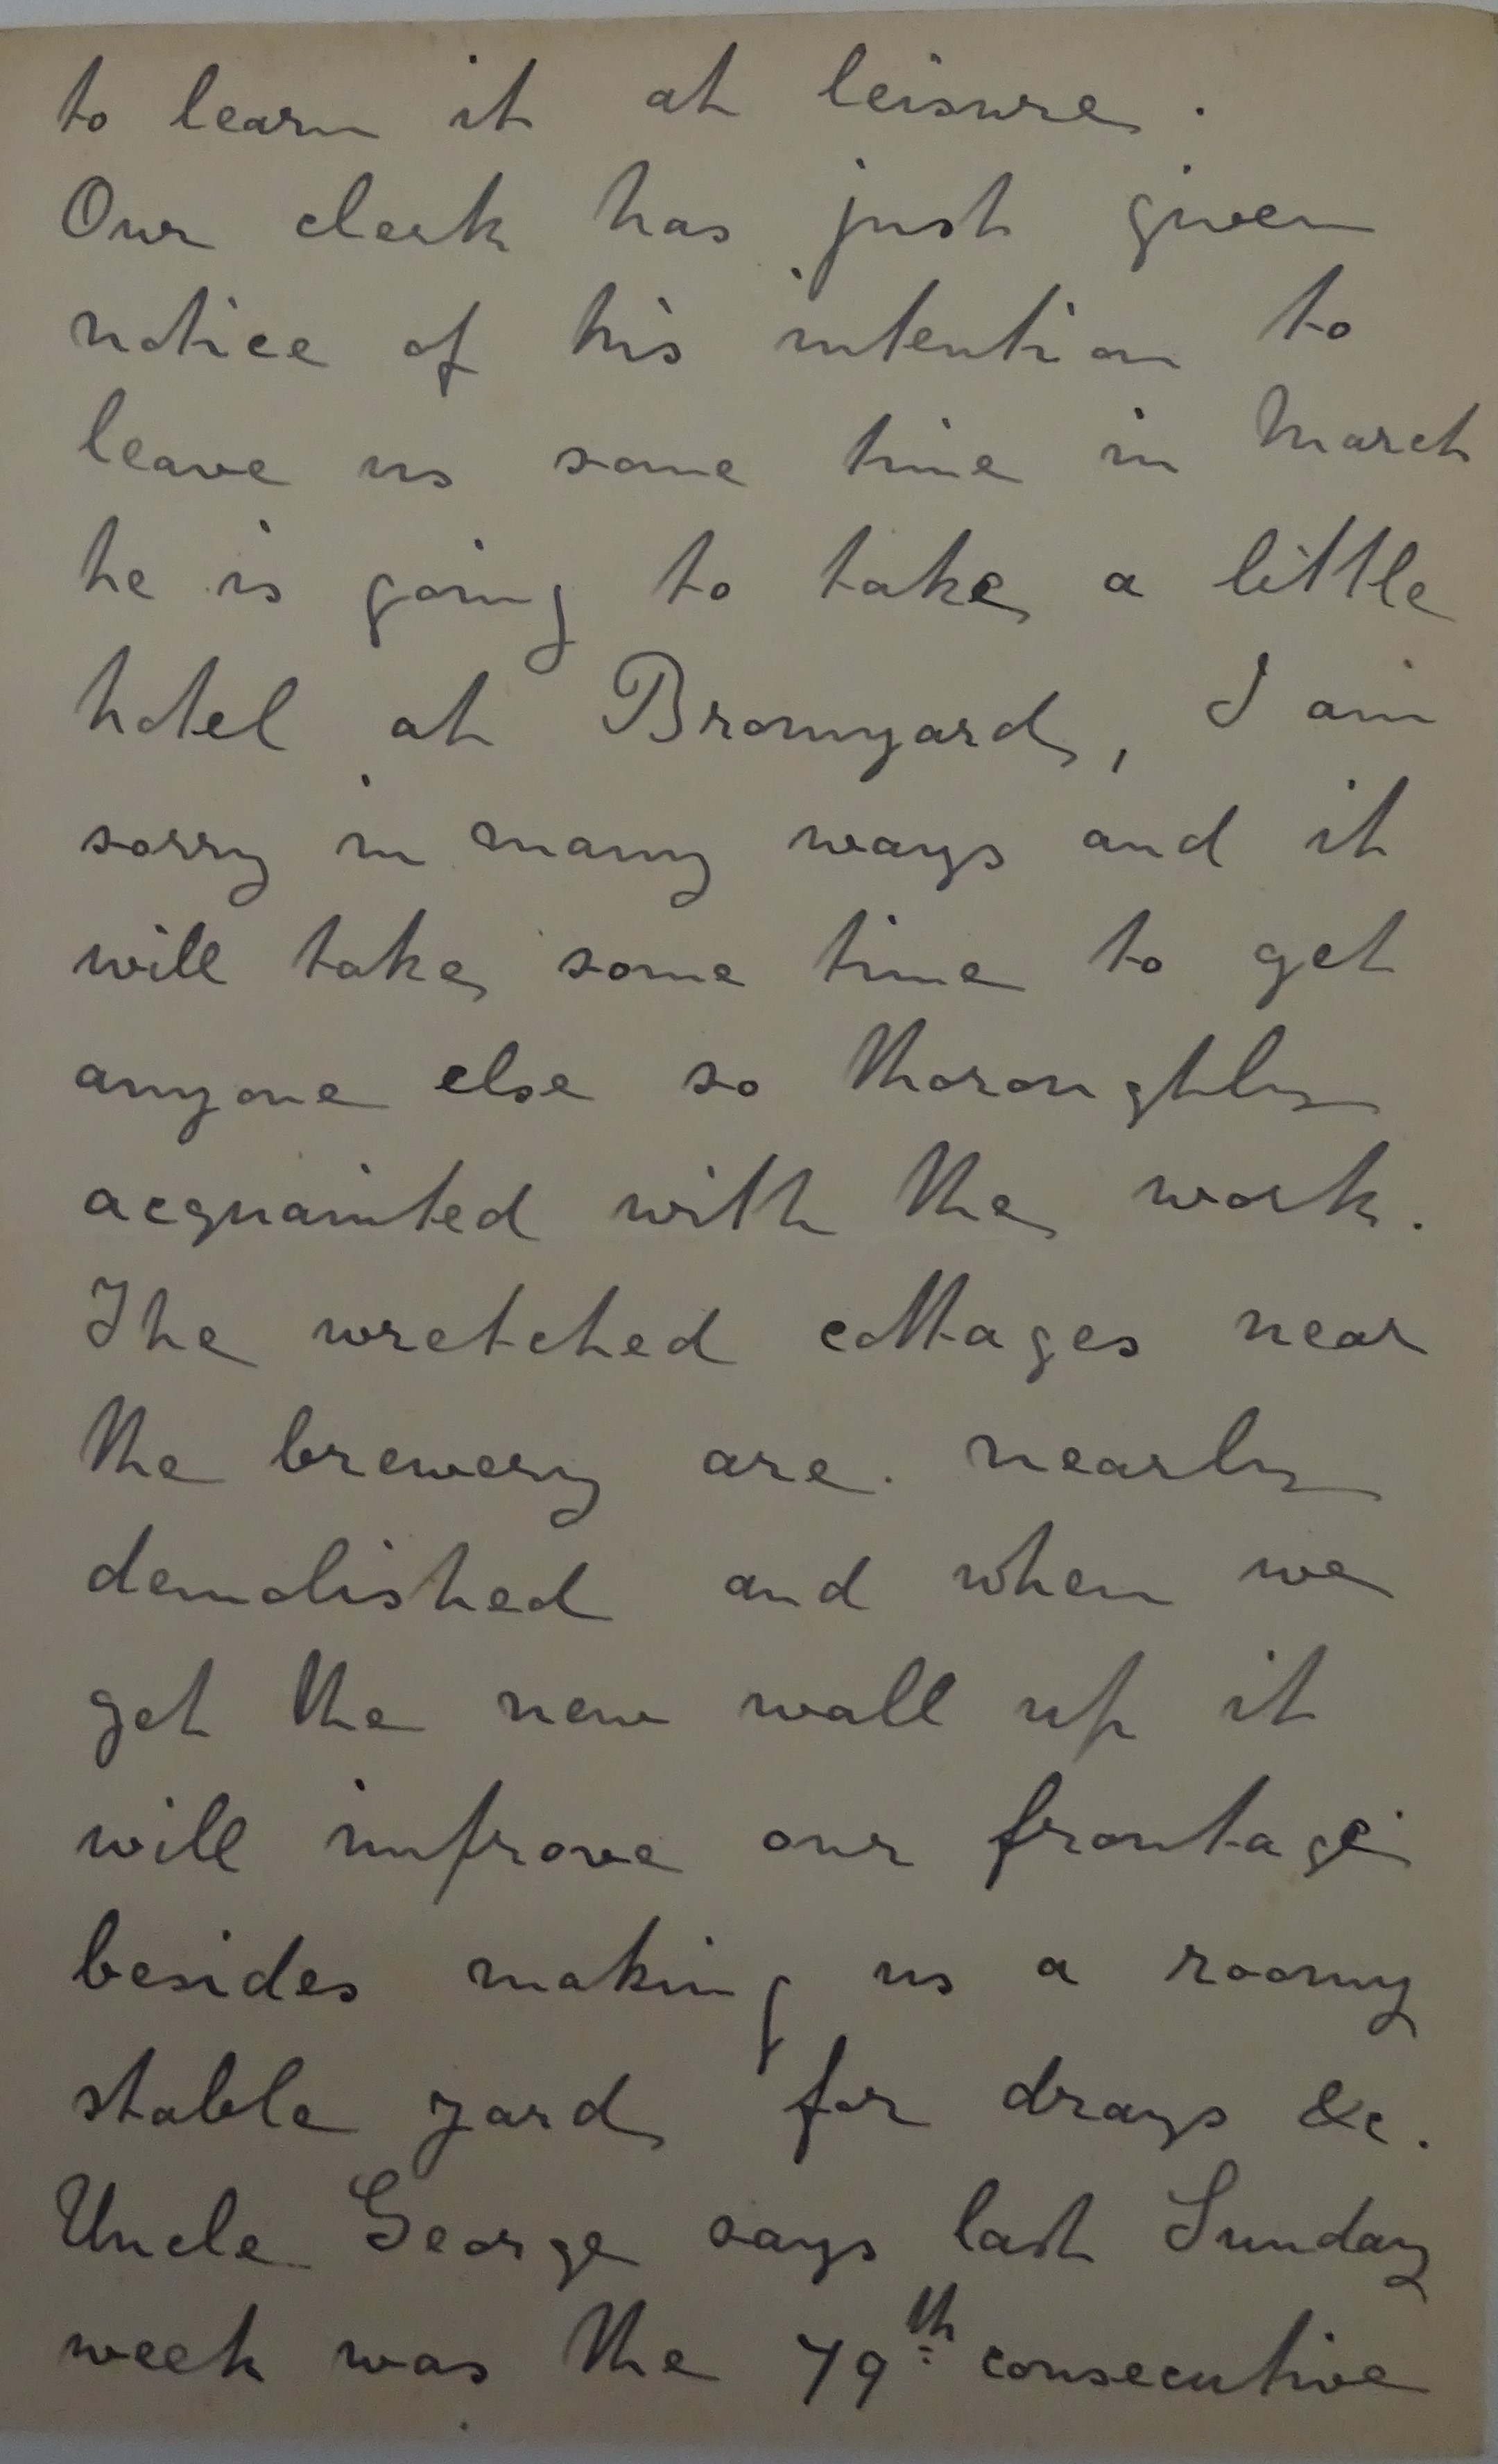 to learn it at leisure.
Our clerk has just given
notice of his intention to
leave us some time in March
he is going to take a little
hotel at Bromyard, I am
sorry in many ways and it
will take some time to get
anyone else so thoroughly
acquainted with the work.
The wretched cottages near
the brewery are nearly
demolished and when we
get the new wall up it
will improve our frontage
besides making us a roomy
stable yard for drays &c.
Uncle George says last Sunday
week was the 79th consecutive